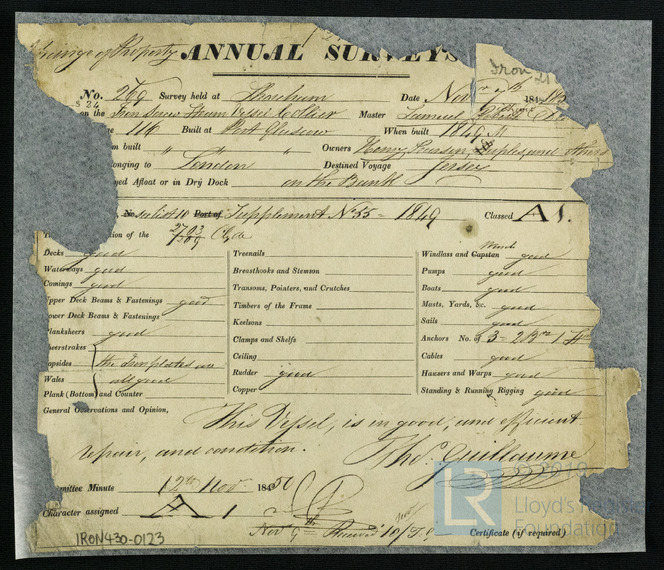 Change of Property ANNUAL SURVEYS
Iron
No. 269 Survey held at Shoreham Date Nov 184
on the Iron Screw Steam Vessel Collier Master Samuel
116 Built at Port Glasgow When built 1849
built " " " Owners Henry
longing to London Destined Voyage Jersey
yed Afloat or in Dry Dock on the Bank
No Port of Supplement No 55 - 1849 Classed A 1.
ion of the 2703 Clyde
Decks good Treenails Windlass and Capstan good
Waterways good Breasthooks and Stemson Pumps good
Comings good Transoms, Pointers, and Crutches Boats good
pper Deck Beams & Fastenings good Timbers of the Frame Masts, Yards, &c. good
ower Deck Beams & Fastenings Keelsons Sails good
lanksheers good Clamps and Shelfs Anchors No. of 3 -
eerstrakes Ceiling Cables good
opsides the Iron plates are Rudder good Hausers and Warps good
Wales all good Copper Standing & Running Rigging good
Plank (Bottom) and Counter
General Observations and Opinion,
This Vessel, is in good, and efficient
repair, and condition. Thos. Guillaume
mmittee Minute 12th Nov 1850
Character assigned A 1
Nov 9th Received 10/
Certificate (if required)
IRON430-0123
LR
© 2019
Lloyd's
Foundation